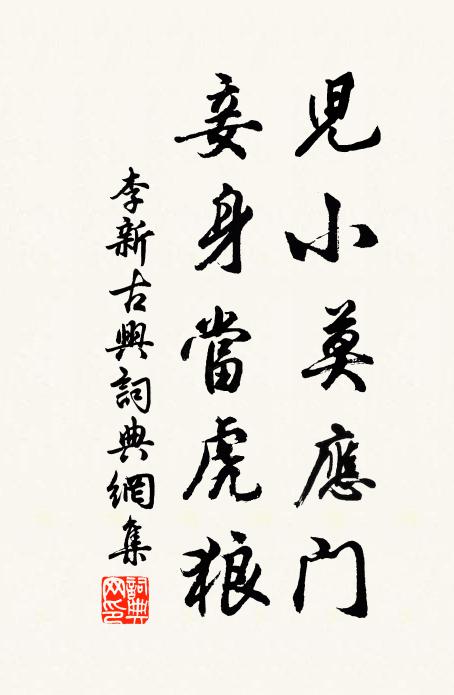 兒小莫應門
妾身當虎狼
李新古興詞典網集
詞典網印